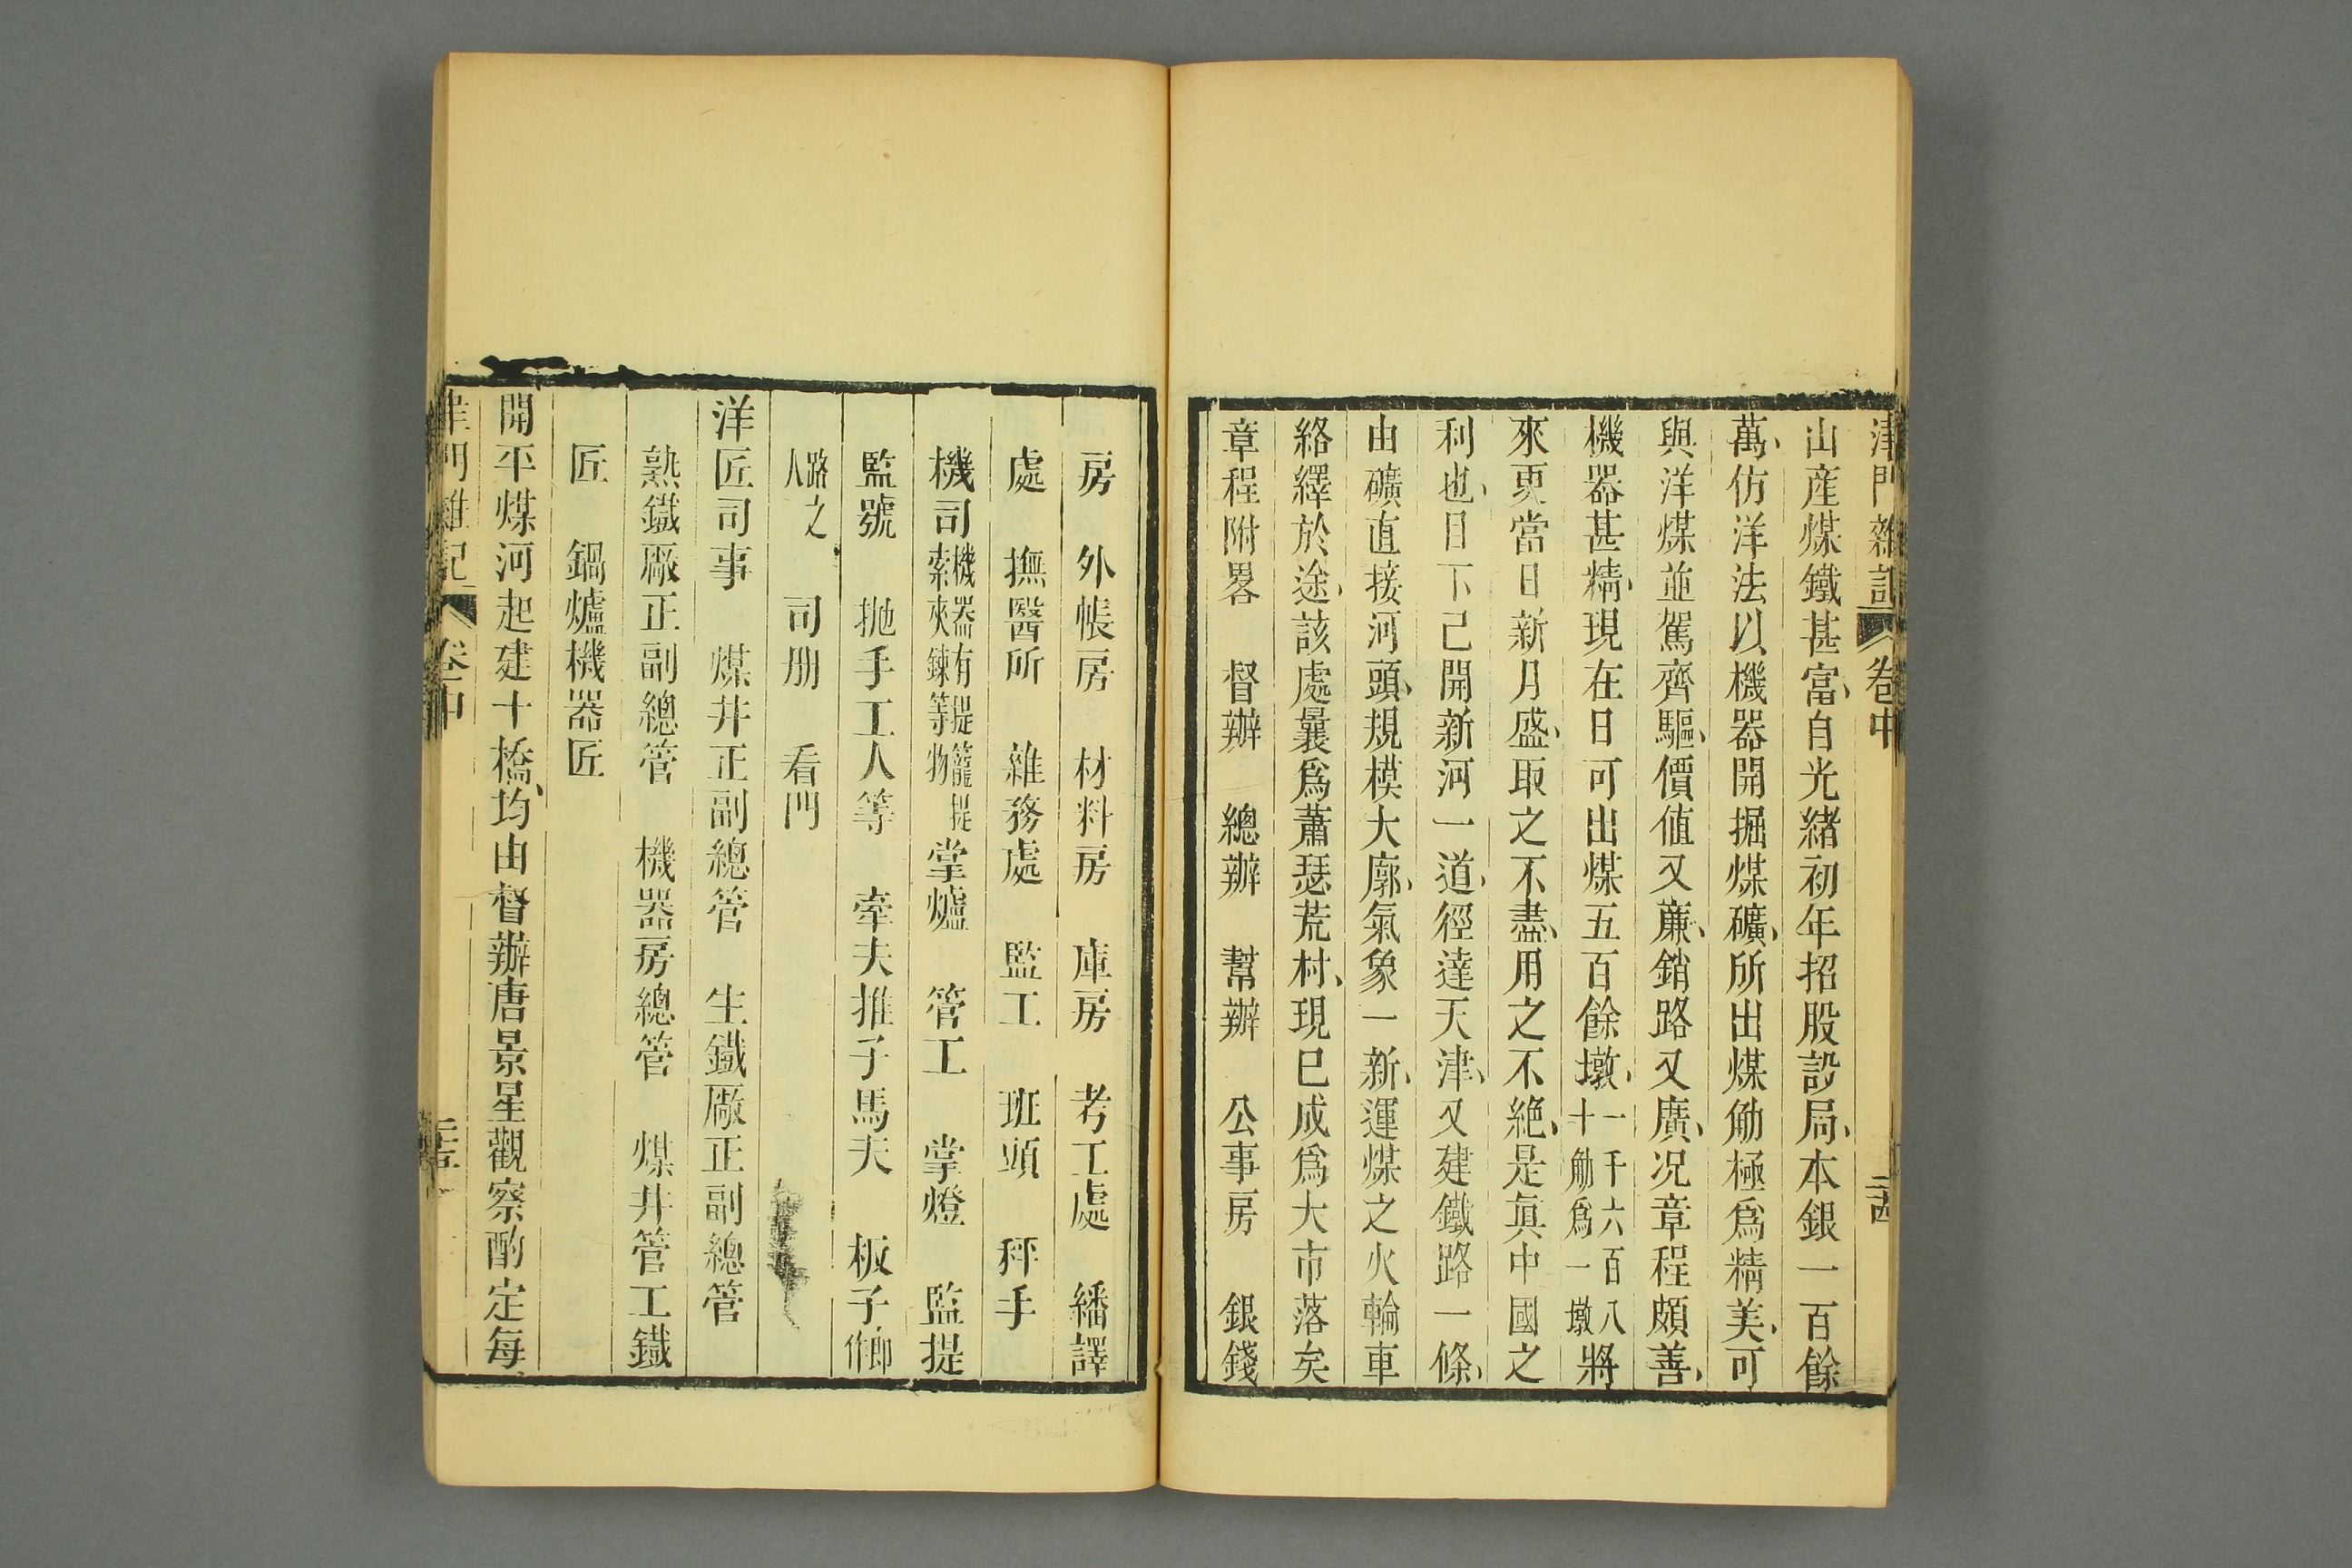 津門雜記 卷中 二十四
山産煤鐵甚富、自光緒初年招股設局、本銀一百餘
萬、仿洋法以機器開掘煤礦、所出煤觔極爲精美、可
與洋煤並駕齊驅、價値又亷、銷路又廣、况章程頗善、
機器甚精、現在日可出煤五百餘墩、一千六百八十觔爲一墩將
來更當日新月盛、取之不盡、用之不絶、是眞中國之
利也、日下已開新河一道、徑達天津、又建鐵路一條、
由礦直接河頭、規模大廓、氣象一新、運煤之火輪車
絡繹於途、該處曩爲蕭瑟荒村、現已成爲大市落矣
章程附畧 督辦 總辦 幫辦 公事房 銀錢
房 外帳房 材料房 庫房 考工處 繙譯
處 撫醫所 雜務處 監工 班頭 秤手
機司機器有提籠提索夾鍊等物 掌爐 管工 掌燈 監提
監號 拋手工人等 牽夫推子馬夫 板子卽作
路之人 司册 看門
洋匠司事 煤井正副總管 生鐵厰正副總管
熟鐵厰正副總管 機器房總管 煤井管工鐵
匠 鍋爐機器匠
開平煤河起建十橋、均由督辦唐景星觀察酌定每、
津門雜記 卷中